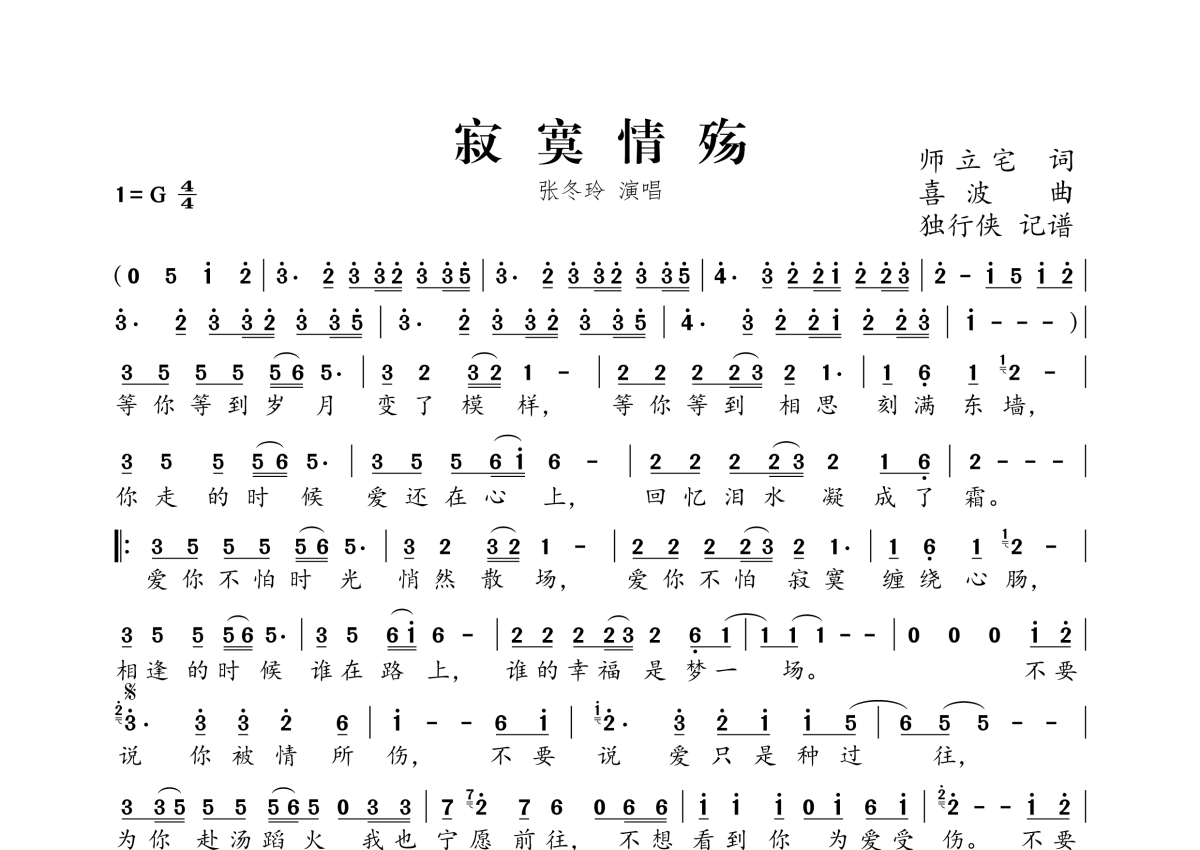 寂寞情殇
师立宅 词
1=G 4/4
张冬玲 演唱
喜波 曲
独行侠 记谱
(0 5 i 2|3· 2 3 32 3 35|3· 2 3 32 3 35|4· 3 2 2i 2 23|2 - i 5 i 2|
3· 2 3 32 3 35|3· 2 3 32 3 35|4· 3 2 2i 2 23|i - - -)|
3 5 5 5 56 5·|3 2 32 1 -|2 2 2 23 2 1·|1 6 1 1 2 -|
等你等到岁月变了模样，等你等到相思刻满东墙，
3 5 5 56 5·|3 5 5 6i 6 -|2 2 2 23 2 1 6|2 - - -|
你走的时候爱还在心上，回忆泪水凝成了霜。
‖: 3 5 5 5 56 5·|3 2 32 1 -|2 2 2 23 2 1·|1 6 1 1 2 -|
爱你不怕时光悄然散场，爱你不怕寂寞缠绕心肠，
3 5 5 56 5·|3 5 6i 6 -|2 2 2 23 2 6 1|1 1 1 - -|0 0 0 i 2|
相逢的时候谁在路上，谁的幸福是梦一场。不要
2 3· 3 3 2 6|i - - 6 i|i 2· 3 2 i i 5|6 5 5 - -|
说你被情所伤，不要说爱只是种过往，
3 35 5 5 56 5 0 3 3|7 7 2 7 6 0 6 6|i i i 0 i 6 i|2 2 - - i 2|
为你赴汤蹈火我也宁愿前往，不想看到你为爱受伤。不要